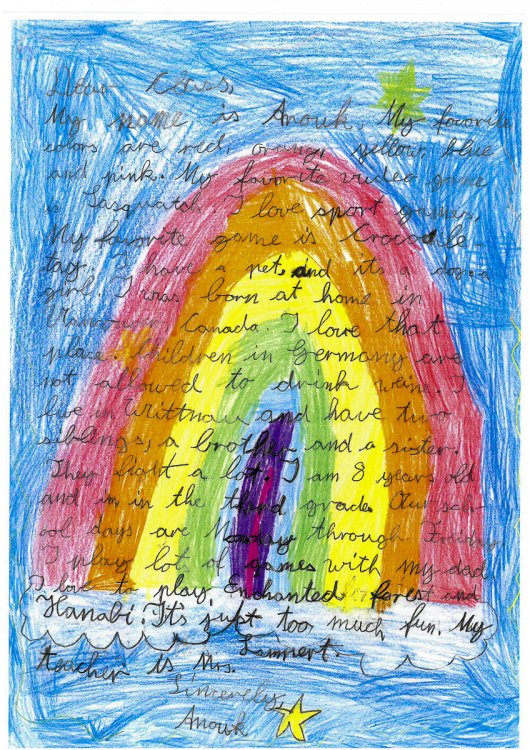 Dear Class,
My name is Anouk. My favorite
colors are red, orang, yellow, blue
and pink. My favorite video game
is Sasquatch. I love sport games.
My favorite game is Crocodile
tag. I have a pet and its a dog, a
girl. I was born at home in
Canada. I love that
place. Children in Germany are
not allowed to drink wein. I
live in Wittnau and have two
siblings, a brother and a sister.
They fight a lot. I am 8 years old
and im in the third grade. Our sch-
ool days are Monday through Friday.
I play lots of games with my dad.
I love to play Enchanted forest and
Hanabi. It's just too much fun. My
teacher is Mrs. Limpert.
Sincerely,
Anouk